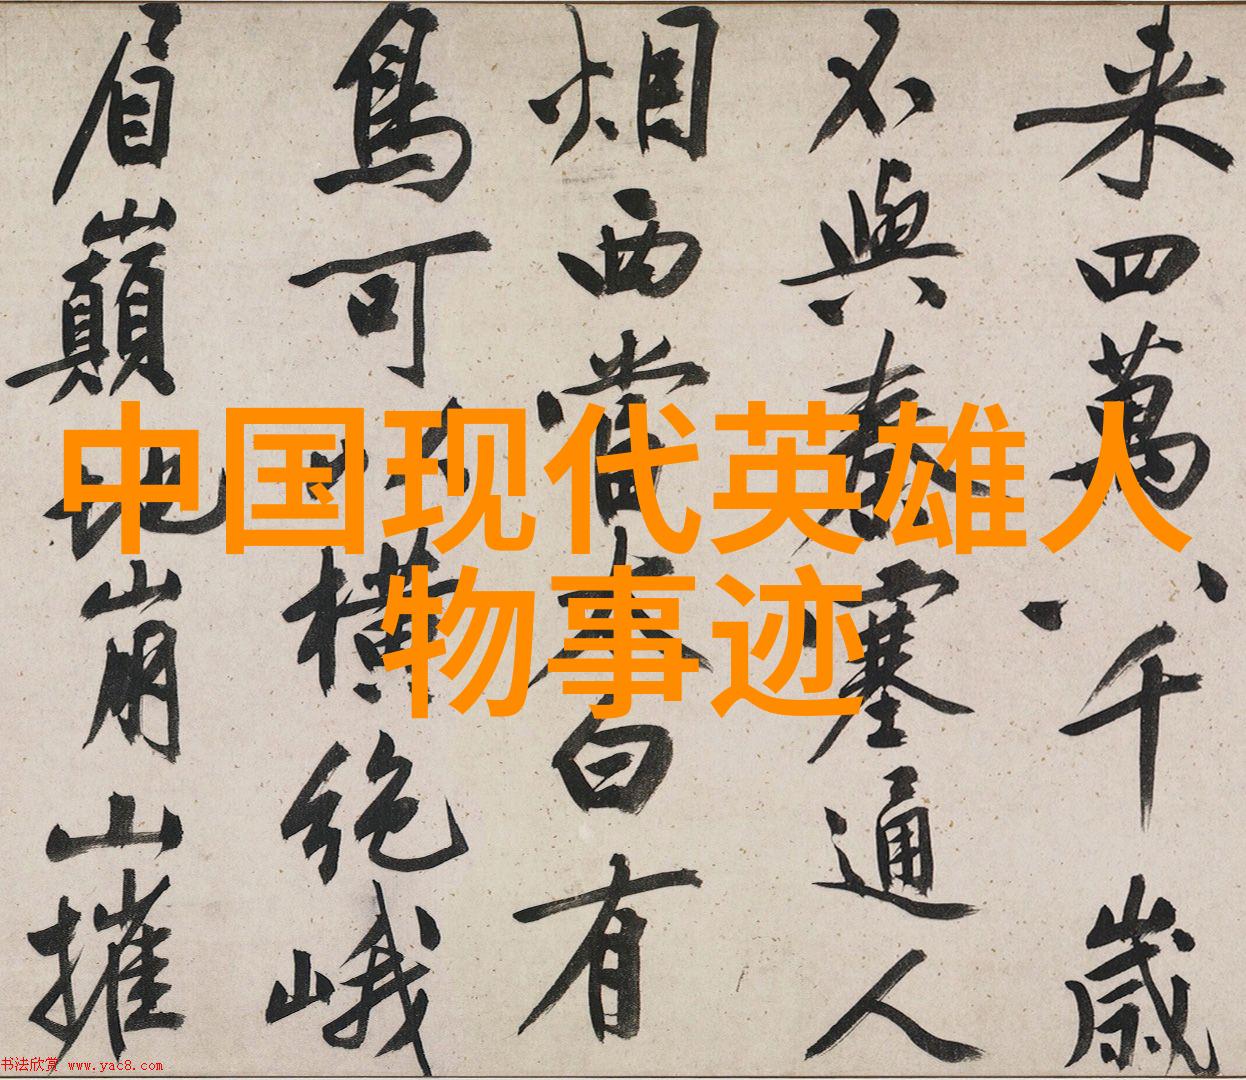 来四萬八千歲
不與秦塞通人
烟西當太白有
鳥可以橫絕峨
眉巔地崩山摧
中国现代英雄人
物事迹
书法欣赏 www.yac8.com